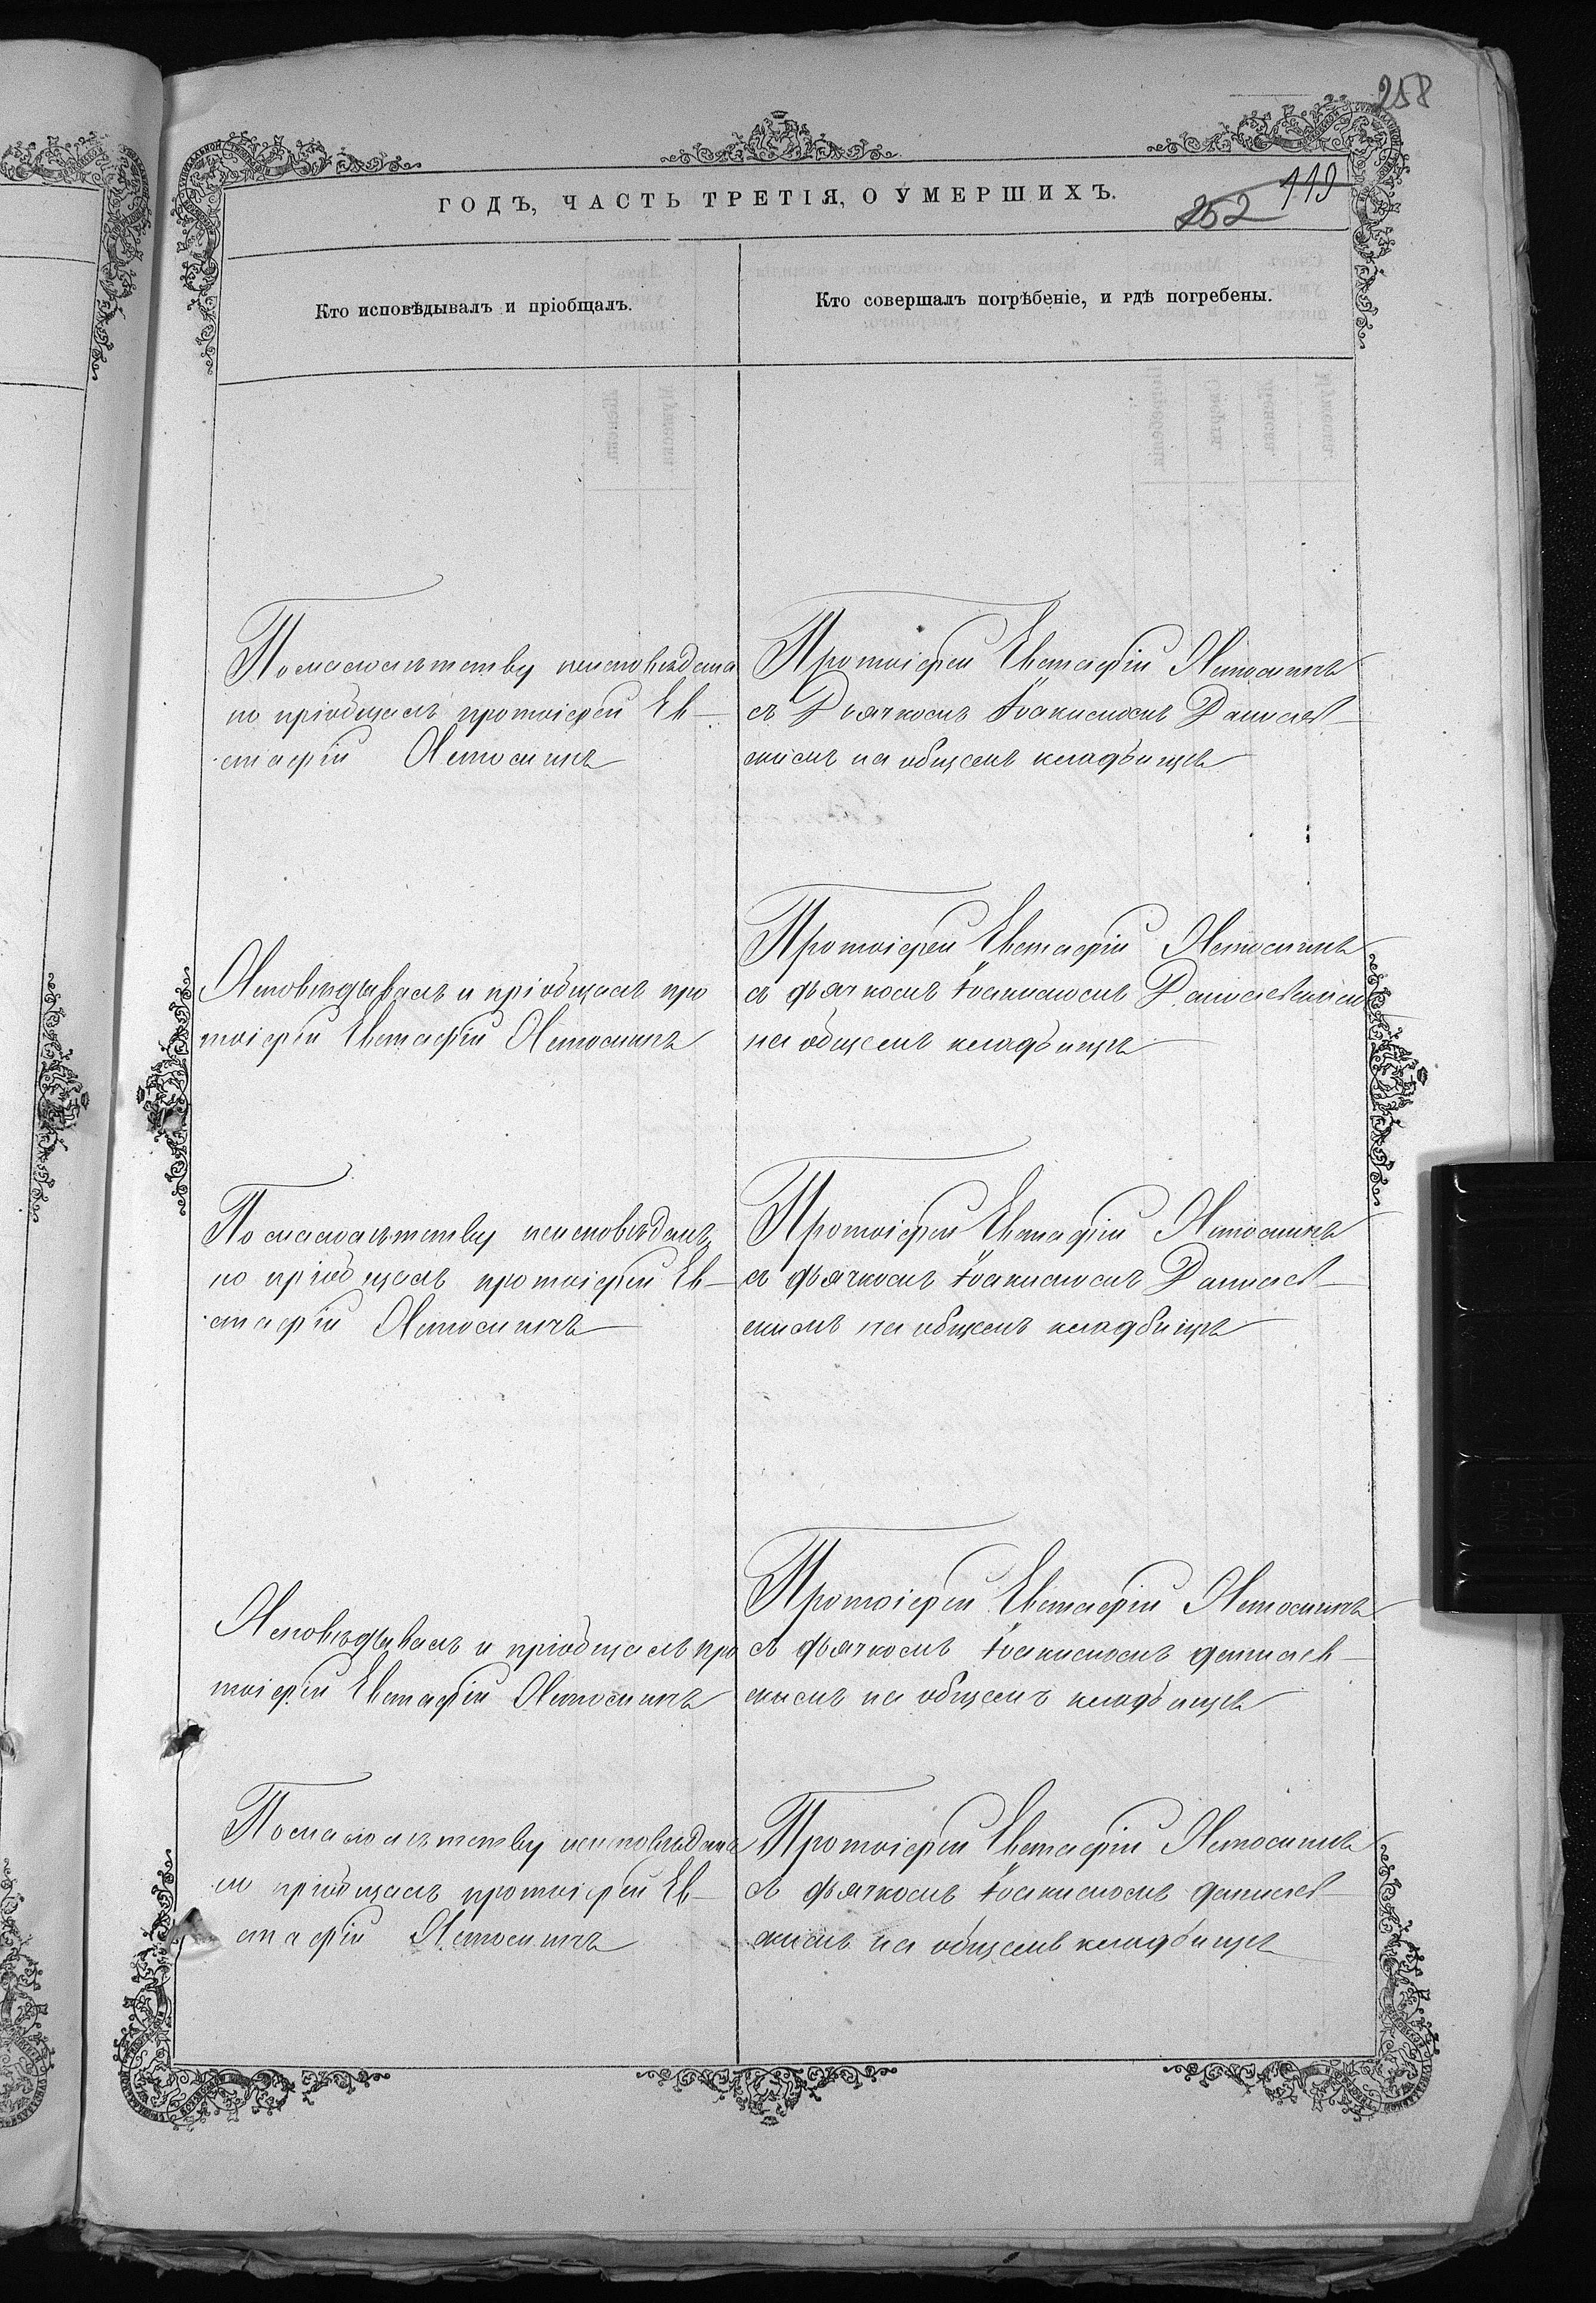 258
ГОДЪ, ЧАСТЬ ТРЕТІЯ, О УМЕРШИХЪ.
252 119
Кто исповѣдывалъ и пріобщалъ.
Кто совершалъ погрѣбеніе, и гдѣ погребены.
По малолѣтству неисповѣдана
но пріобщалъ протоіерей Ев-
стафій
Протоіерей Евстафій
съ Дьячкомъ Іоакимомъ
скимъ на общемъ кладбищѣ
Исповѣдывалъ и пріобщалъ про
тоіерей Евстафій
Протоіерей Евстафій
съ дьячкомъ Іоакимомъ
на общемъ кладбищѣ
По малолѣтству неисповѣданъ
но пріобщалъ протоіерей Ев-
стафій
Протоіерей Евстафій
съ дьячкомъ Іоакимомъ
скимъ на общемъ кладбищѣ
Исповѣдывалъ и пріобщалъ про
тоіерей Евстафій
Протоіерей Евстафій
съ дьячкомъ Іоакимомъ
скимъ на общемъ кладбищѣ
По малолѣтству неисповѣданъ
но пріобщалъ протоіерей Ев-
стафій
Протоіерей Евстафій
съ дьячкомъ Іоакимомъ
скимъ на общемъ кладбищѣ